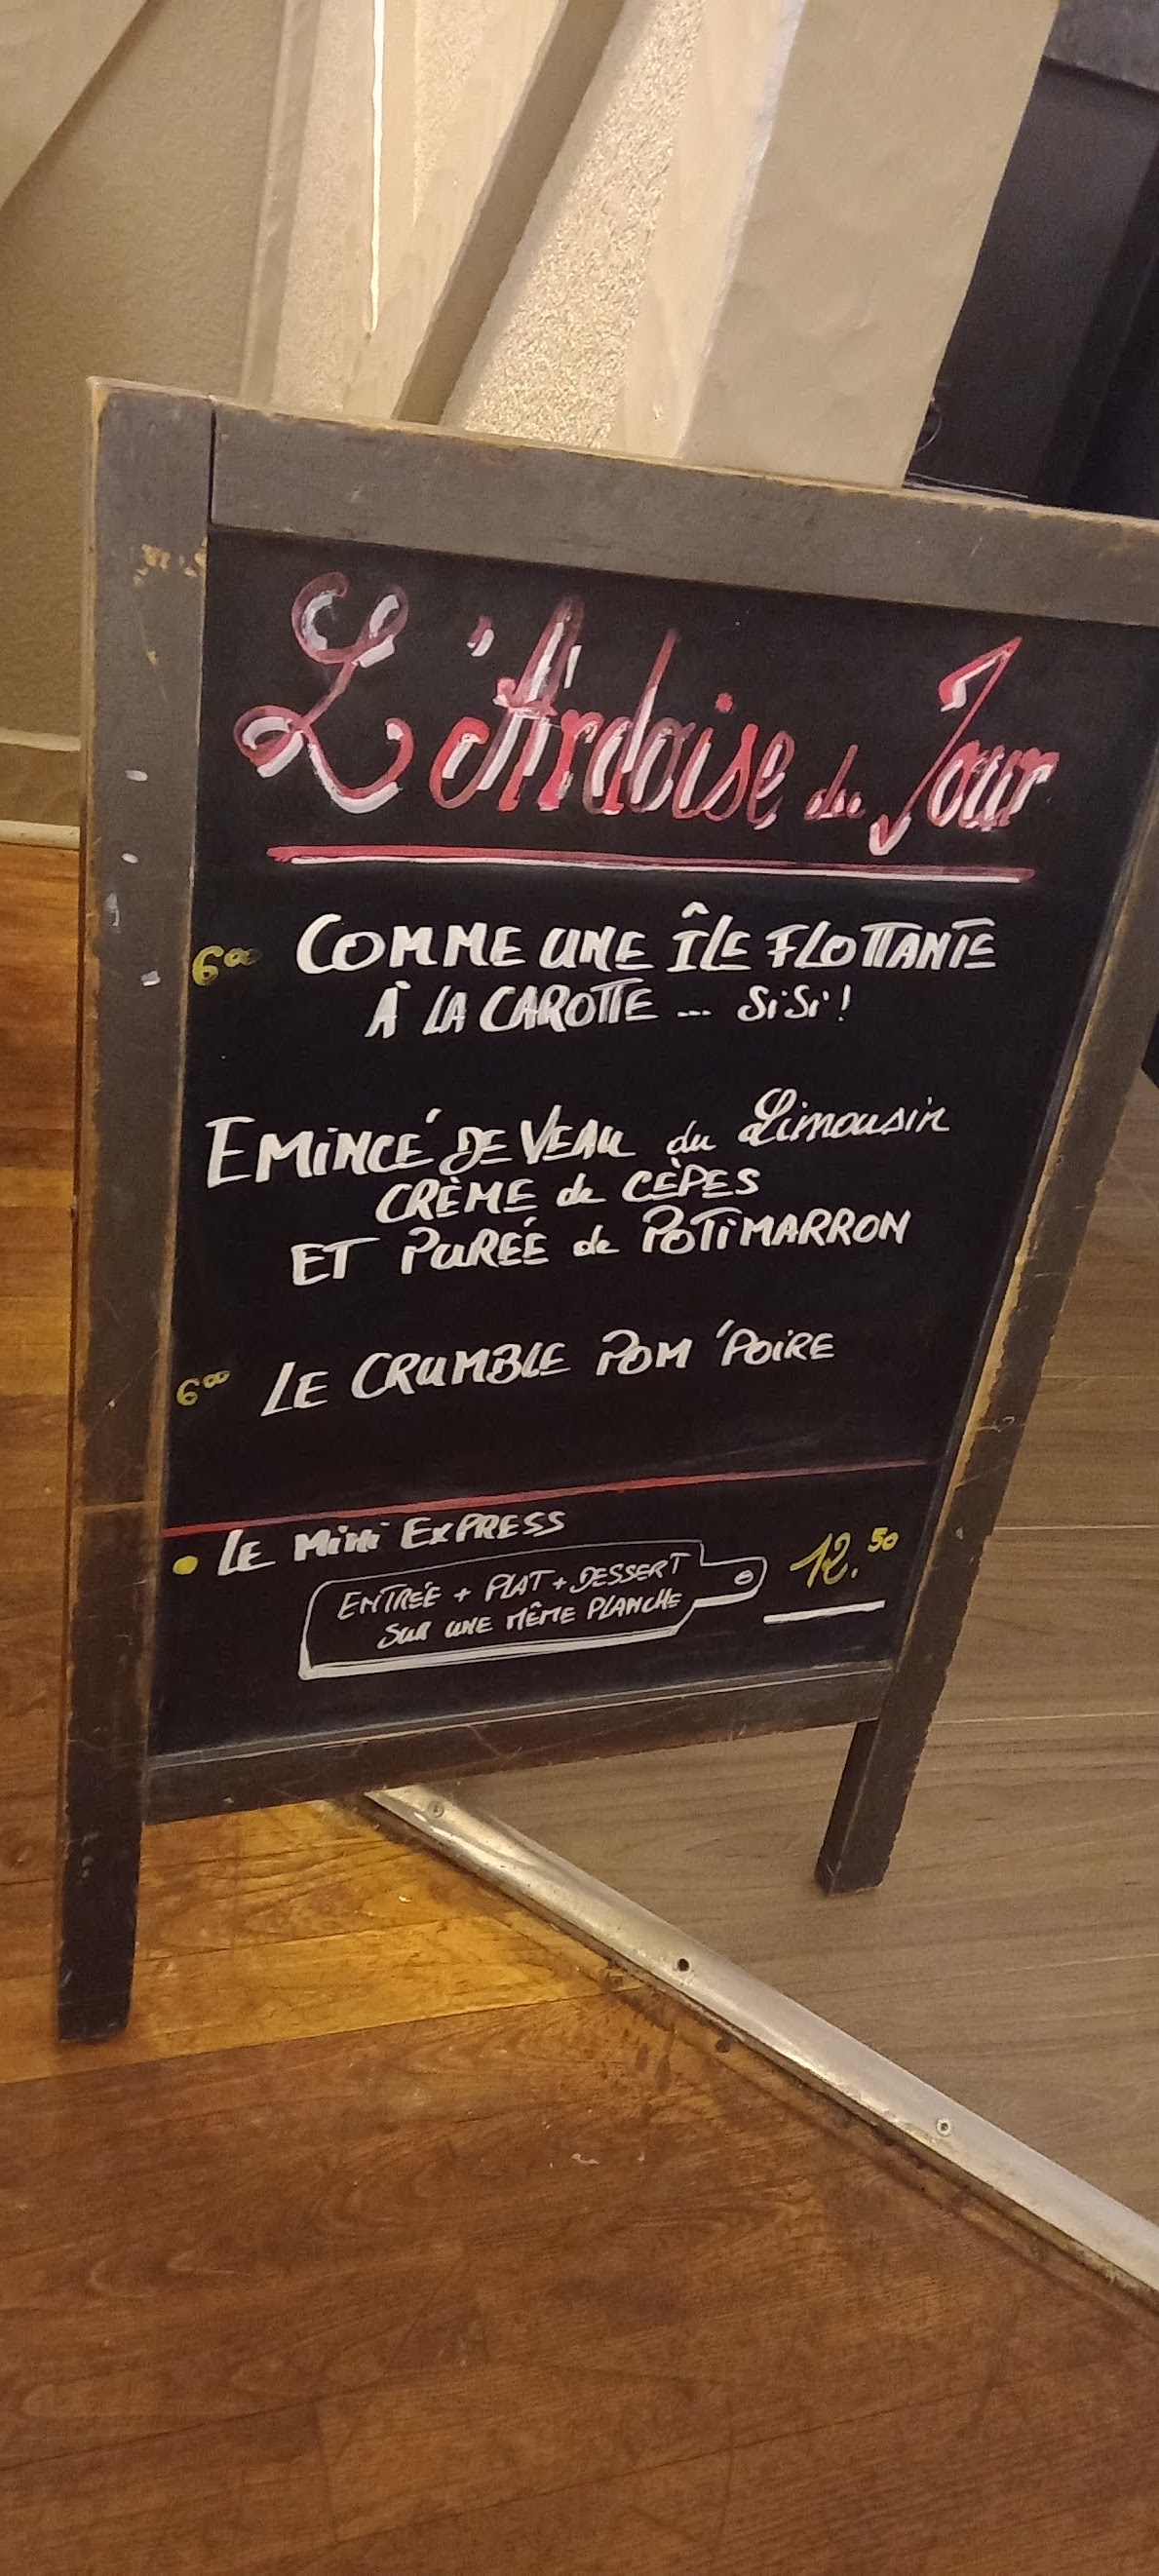 L'Ardoise du Jour
6°° COMME UNE ÎLE FLOTTANTE
À LA CAROTTE ... Si Si !
EMINCÉ DE VEAU du Limousin
CRÈME de CÈPES
ET PURÉE de POTIMARRON
6°° LE CRUMBLE POM'POIRE
• LE MiNi EXPRESS
ENTRÉE + PLAT + DESSERT
SUR UNE MÊME PLANCHE
12.50